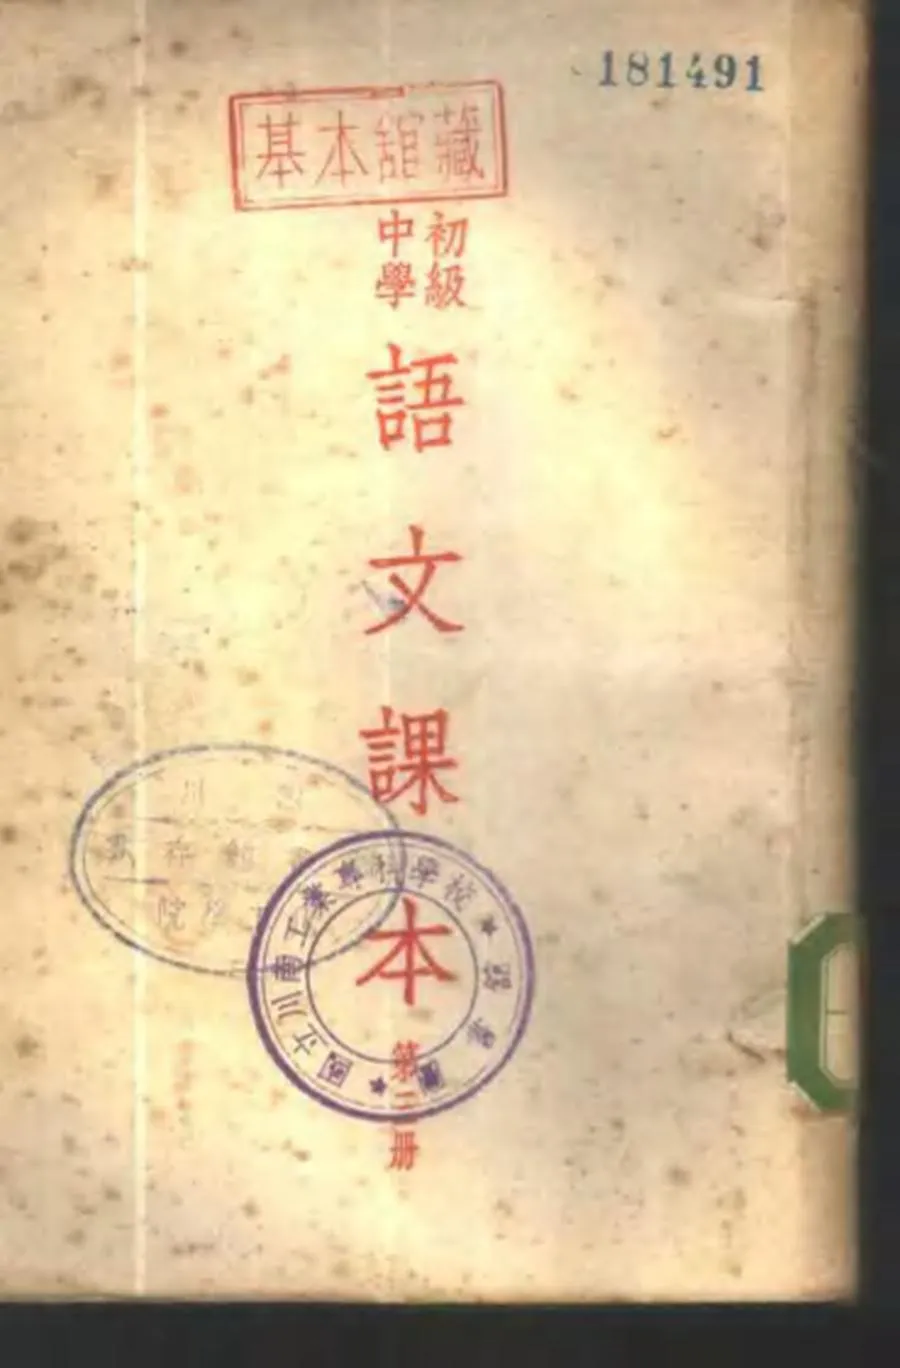 181491
基本館藏
初級
中學
語文課本
第二册
國立川南工業專科學校
圖書館